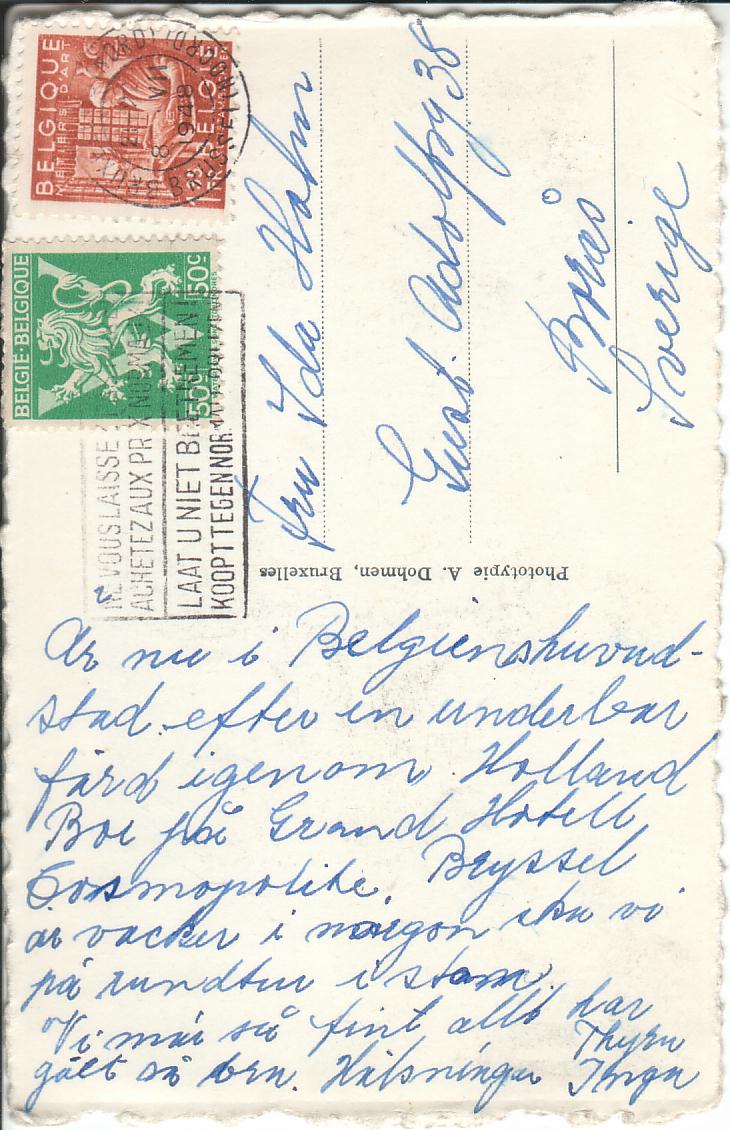 BELGIQUE
MÉTIERS D'ART
BELGIE
BELGIE-BELGIQUE
50c
50c
9-48
NE VOUS LAISSEZ
ACHETEZ AUX PRIX NORMAUX
LAAT U NIET BEETNEMEN!
KOOPT TEGEN NORMALE
Fru Ida Holm
Gust. Adolfsg 38
Borås
Sverige
Phototypie A. Dohmen, Bruxelles
Är nu i Belgienshuvud-
stad efter en underbar
färd igenom Holland
Bor på Grand Hotell
Cosmopolite. Bryssel
är vacker i morgon ska vi
på rundtur i stan.
Vi mår så fint allt har
gått så bra. Hälsningar Thyra
Inga